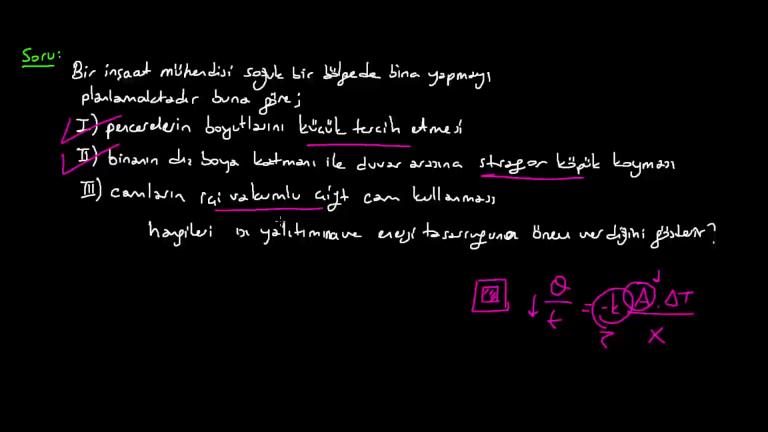 Soru:
Bir inşaat mühendisi soğuk bir bölgede bina yapmayı
planlamaktadır buna göre;
I) pencerelerin boyutlarını küçük tercih etmesi
II) binanın dış boya katmanı ile duvar arasına strafor köpük koyması
III) camların içi vakumlu çift cam kullanması
hangileri ısı yalıtımına ve enerji tasarrufuna önem verdiğini gösterir?
↓ Q/t = -k A . ΔT / x